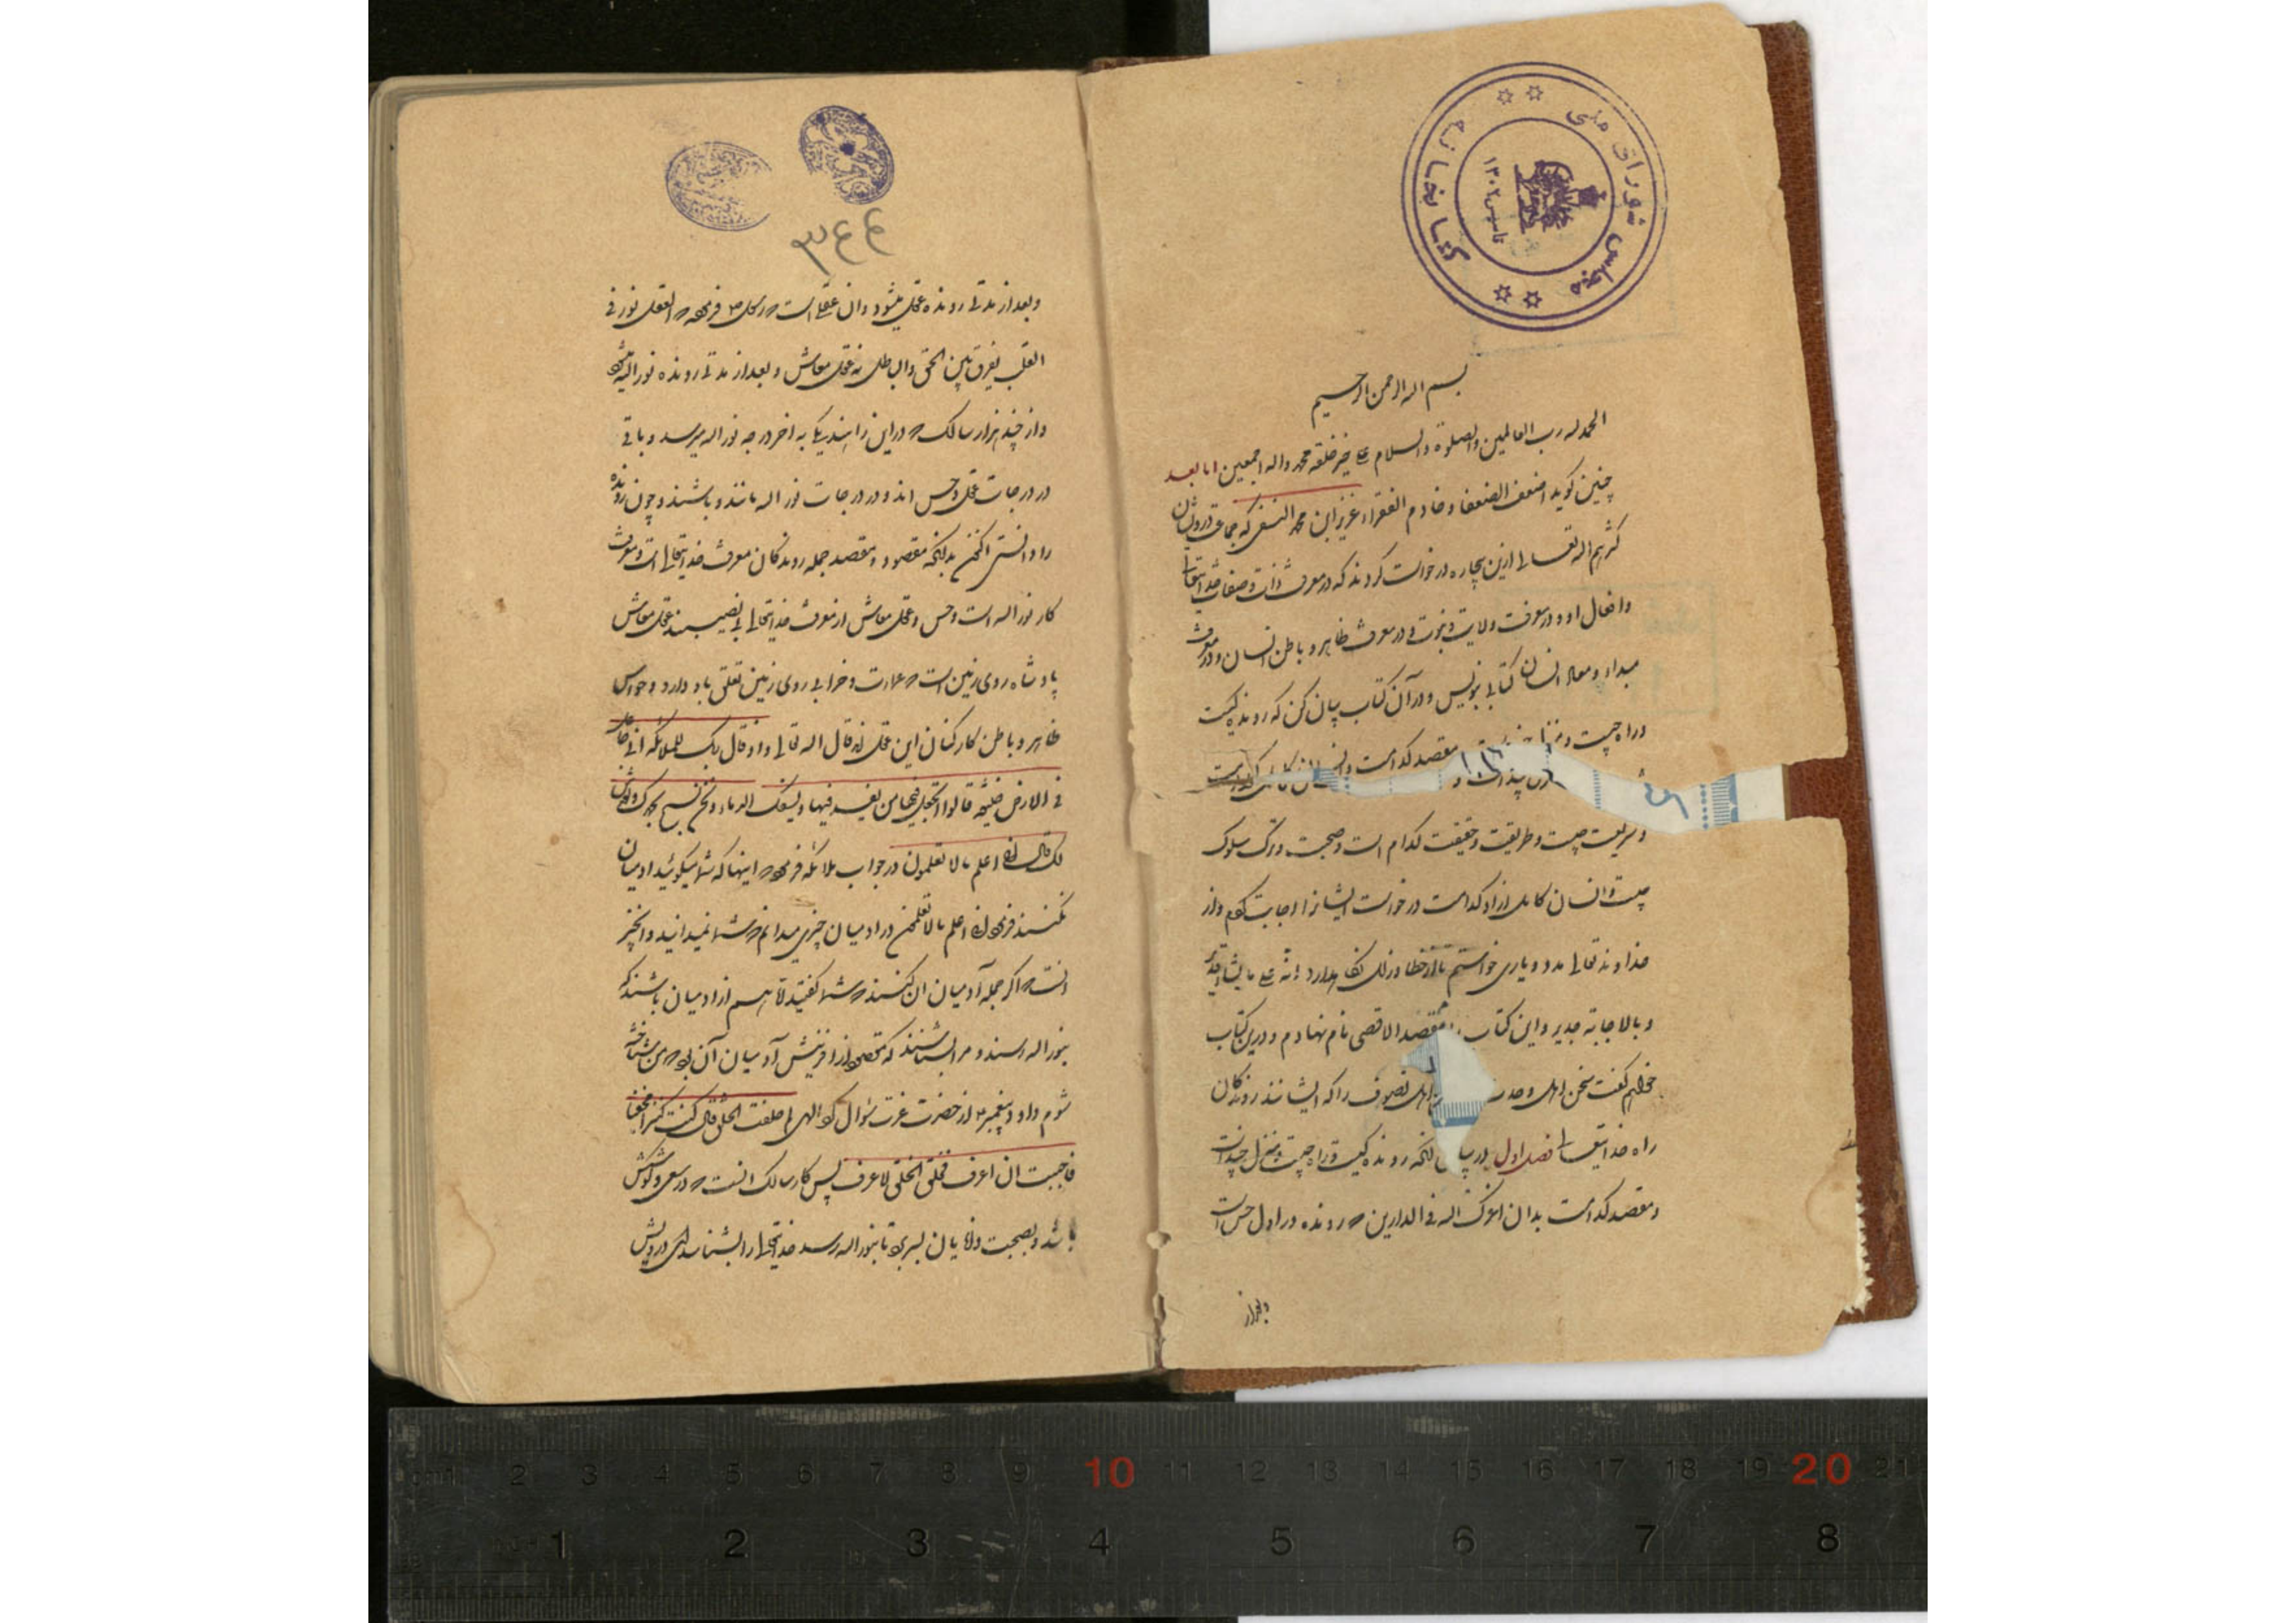 کتابخانه مجلس شورای ملی
تاسیس ۱۳۰۲
بسم اله الرحمن الرحیم
الحمد لله رب العالمین والصلوة والسلام علی خیر خلقه محمد واله اجمعین اما بعد
چنین کوید اضعف الضعفا و خادم الفقراء عزیز ابن محمد النسفی که جماعت درویشان
کثرهم اله تعالی ازین بیچاره درخواست کردند که در معرفت ذات و صفات خدایتعالی
وافعال او و در معرفت ولایت و نبوت و در معرفت ظاهر و باطن انسان و در معرفت
مبداء و معاد انسان کتابی بنویس و در آن کتاب بیان کن که رونده کیست
و راه چیست و مقصد کدامست
و شریعت چیست و طریقت و حقیقت کدام است و صحبت و ترک سلوک
چیست و انسان کامل ازاد کدامست درخواست ایشانرا اجابت کردم و از
خداوند تعالی مدد و یاری خواستم تا از خطا و زلل نگاهدارد انه علی ما یشاء قدیر
و بالاجابة جدیر و این کتاب مقصد الاقصی نام نهادم و درین کتاب
خواهم کفت سخن اهل وحدت اهل تصوف را که ایشانند روندکان
راه خدایتعالی فصل اول در بیان انکه رونده کیست و راه چیست و منزل چند است
و مقصد کدامست بدان اعزک اله فی الدارین که رونده در اول حس است
و بعد از
۳۴۴
و بعد از مدتی رونده عقل میشود و ان عقلی است که رسول فرموده که العقل نور فی
القلب یفرق بین الحق والباطل نه عقل معاش و بعد از مدتی رونده نور اله میشود
و از چندهزار سالک که در این راهند یکی به اخر درجه نور اله میرسد و باقی
در درجات عقل و حس اند و در درجات نور اله مانند و باشند و چون رونده
را دانستی اکنون بدانکه مقصود و مقصد جمله روندکان معرفت خدایتعالی است و معرفت
کار نور اله است و حس و عقل معاش از معرفت خدایتعالی بی نصیبند عقل معاش
پادشاه روی زمین است که عمارت و خرابی روی زمین تعلق باو دارد و حواس
ظاهر و باطن کارکنان این عقل اند قال اله تعالی و اذ قال ربک للملائکه انی جاعل
فی الارض خلیفة قالوا اتجعل فیها من یفسد فیها و یسفک الدماء و نحن نسبح بحمدک و نقدس
لک قال انی اعلم ما لا تعلمون در جواب ملائکه فرمود که اینها که شما میکوئید ادمیان
نکنند فرمود انی اعلم ما لا تعلمون در ادمیان چیزی میدانم که شما نمیدانید و انچیز
انست که اکر جمله آدمیان ان کنند که شما کفتید لا هم از ادمیان باشند که
بنور اله رسند و مرا بشناسند که مقصود از افرینش آدمیان آن بود که من شناخته
شوم داود پیغمبر از حضرت عزت سوال کرد الهی لم خلقت الخلق قال کنت کنزا مخفیا
فاحببت ان اعرف فخلقت الخلق لاعرف پس کار سالک انست که در سعی و کوشش
باشد و بصحبت دانایان بسر برد تا بنور اله رسد و خدایتعالی را بشناسد ای درویش